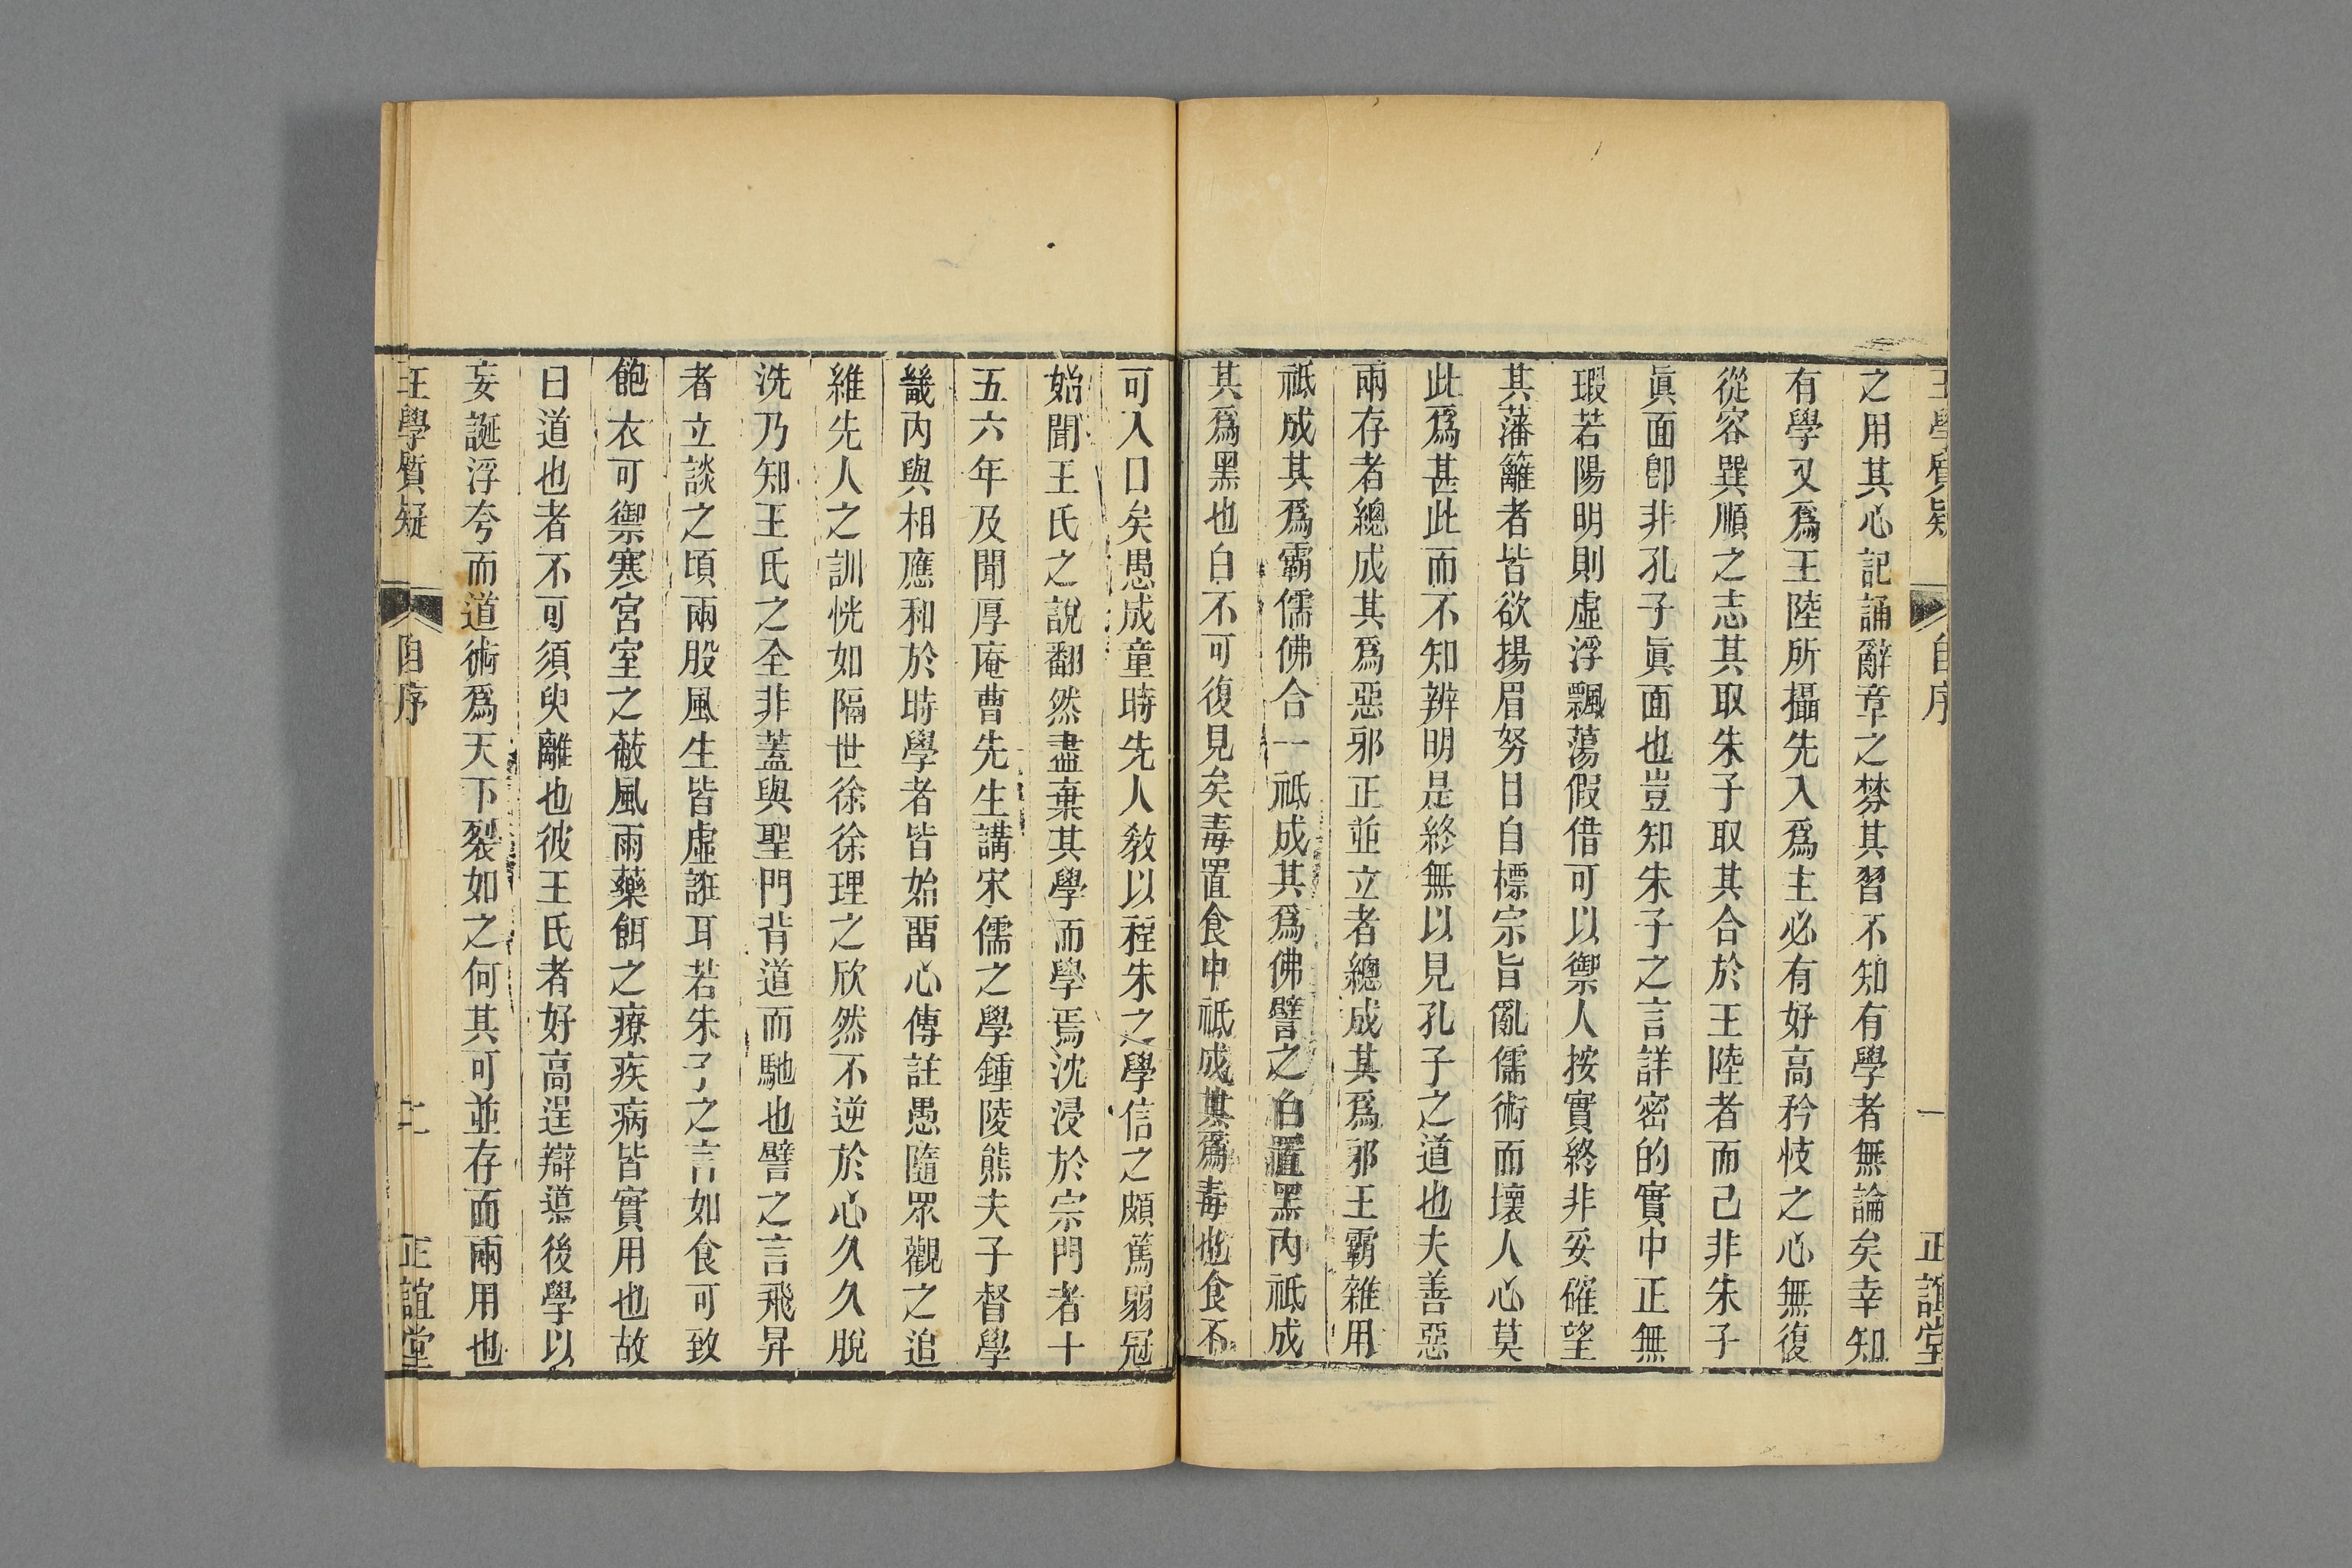 王學質疑 自序 一 正誼堂
之用其心記誦辭章之棼其習不知有學者無論矣幸知
有學又爲王陸所攝先入爲主必有好高矜忮之心無復
從容巽順之志其取朱子取其合於王陸者而已非朱子
眞面卽非孔子眞面也豈知朱子之言詳密的實中正無
瑕若陽明則虛浮飄蕩假借可以禦人按實終非妥確望
其藩籬者皆欲揚眉努目自標宗旨亂儒術而壞人心莫
此爲甚此而不知辨明是終無以見孔子之道也夫善惡
兩存者總成其爲惡邪正並立者總成其爲邪王霸雜用
祗成其爲霸儒佛合一祗成其爲佛譬之白置黑內祗成
其爲黑也白不可復見矣毒置食中祗成其爲毒也食不
可入口矣愚成童時先人敎以程朱之學信之頗篤弱冠
始聞王氏之說翻然盡棄其學而學焉沈浸於宗門者十
五六年及聞厚庵曹先生講宋儒之學鍾陵熊夫子督學
畿內與相應和於時學者皆始畱心傳註愚隨眾觀之追
維先人之訓恍如隔世徐徐理之欣然不逆於心久久脫
洗乃知王氏之全非蓋與聖門背道而馳也譬之言飛昇
者立談之頃兩股風生皆虛誑耳若朱子之言如食可致
飽衣可禦寒宮室之蔽風雨藥餌之療疾病皆實用也故
曰道也者不可須臾離也彼王氏者好高逞辯導後學以
妄誕浮夸而道術爲天下裂如之何其可並存而兩用也
王學質疑 自序 二 正誼堂